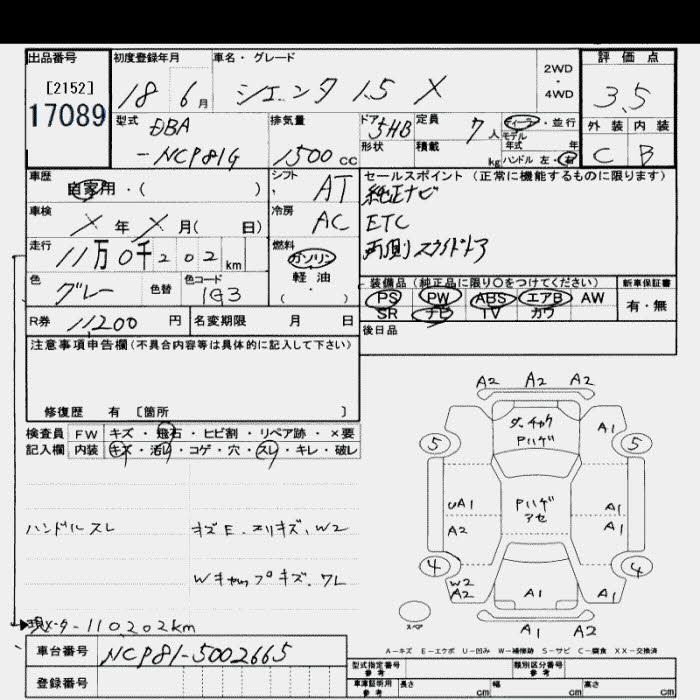 出品番号
[2152]
17089
初度登録年月
18 6月
車名・グレード
シエンタ 1.5 X
2WD
・
4WD
評価点
3.5
外装 内装
C B
型式
DBA
-NCP81G
排気量
1500cc
ドア
5HB
形状
定員
7人
積載
kg
ディーラー・並行
モデル
年式 年
ハンドル 左・右
車歴
自家用・( )
シフト
AT
車検
× 年 × 月( 日)
冷房
AC
セールスポイント(正常に機能するものに限ります)
純正ナビ
ETC
両側スライドドア
走行
11万0千202km
燃料
ガソリン
軽・油
( )
色
グレー
色替
色コード
1G3
装備品(純正品に限り○をつけてください)
PS PW ABS エアB AW
SR ナビ TV カワ
新車保証書
有・無
R券 11,200円
名変期限 月 日
後日品
注意事項申告欄(不具合内容等は具体的に記入して下さい)
修復歴 有 [箇所 ]
検査員
記入欄
FW キズ・飛石・ヒビ割・リペア跡・×要
内装 キズ・汚れ・コゲ・穴・スレ・キレ・破レ
ハンドルスレ
キズE.エリキズ、W2
Wキャップキズ.ワレ
現メータ-110202km
A2 A2 A2
ダ-チャク
Pハゲ
A1
5 5
Pハゲ
アセ
UA1
A2
A1
A1
4 4
W2
A2
A1
A1
A1 A2
スペア
A-キズ E-エクボ U-凹み W-補修跡 S-サビ C-腐食 XX-交換済
車台番号 NCP81-5002665
登録番号
型式指定番号
参考
類別区分番号
参考
車庫証明用
参考
長さ cm 幅 cm 高さ cm